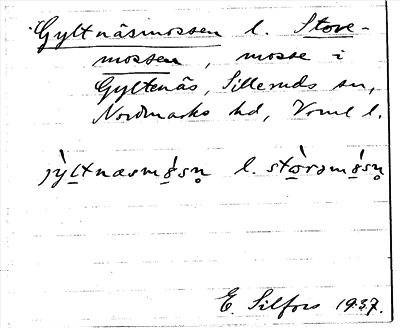 Gyltnäsmossen l. Stove-
mossen, mosse i
Gyltenäs, Silleruds sn,
Nordmarks hd, Vrml l.
jỳḻtnæsmǫ́sn̥ l. stọ̀vəmǫ́sn̥
E. Silfors 1937.